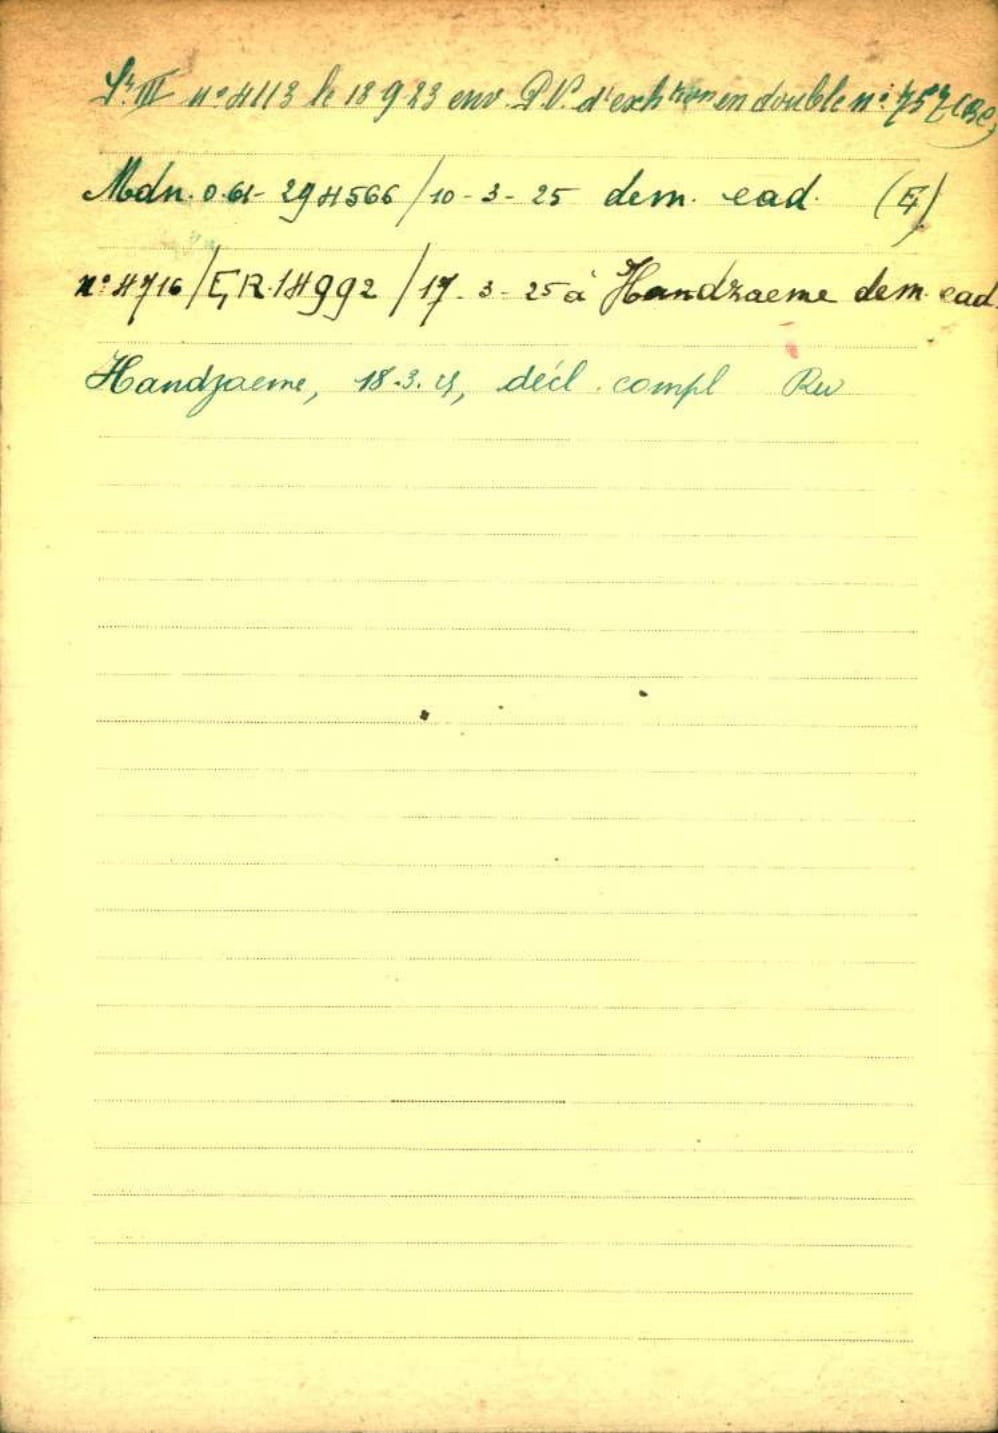 Sr. III n° 4113 le 18 9 23 env. P.V. d'exh tion en double n°: 757 (Be)
Mdn. 0.61- 294566 / 10 - 3 - 25 dem. ead. (G)
n° 4716 / G, R. 14992 / 17 - 3 - 25 à Handzaeme dem. ead.
Handzaeme, 18.3.25, décl. compl Rw